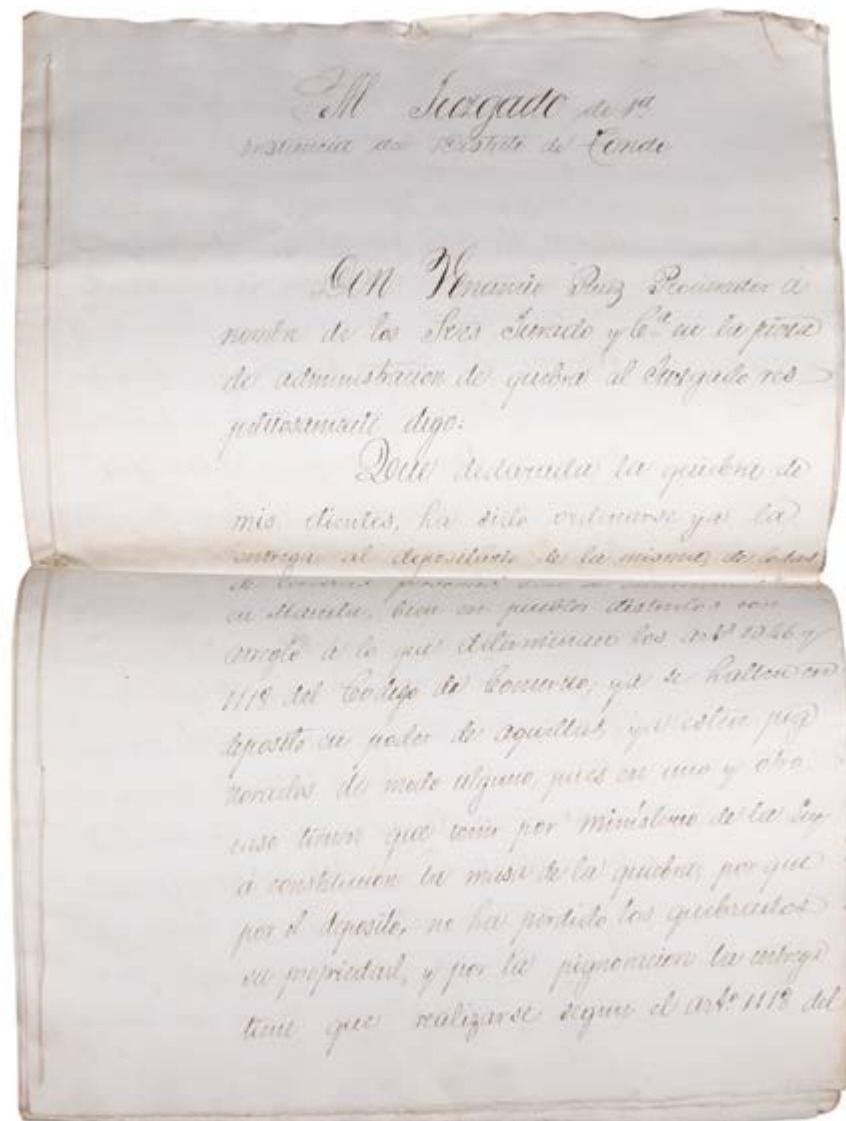 Al Juzgado de 1ª
instancia del Distrito de Tondo
DON Venancio Ruiz Procurador á
nombre de los Sres Jurado y Cª en la pieza
de administracion de quiebra al Juzgado res
petuosamente digo:
Que declarada la quiebra de
mis clientes, ha sido ordinarse ya la
entrega al depositario de la misma, de todas
en Manila, bien en pueblos distintos con
arreglo á lo que determinan los artº 1046 y
1118 del Codigo de Comercio, ya se hallen en
deposito en poder de aquellas, ya esten pig
norados de modo alguno, pues en uno y otro
caso tienen que venir por ministerio de la Ley
á constitucion la masa de la quiebra, por que
por el deposito, no ha perdido los quebrados
su propriedad, y por la pignoracion la entrega
tiene que realizarse segun el artº 1118 del